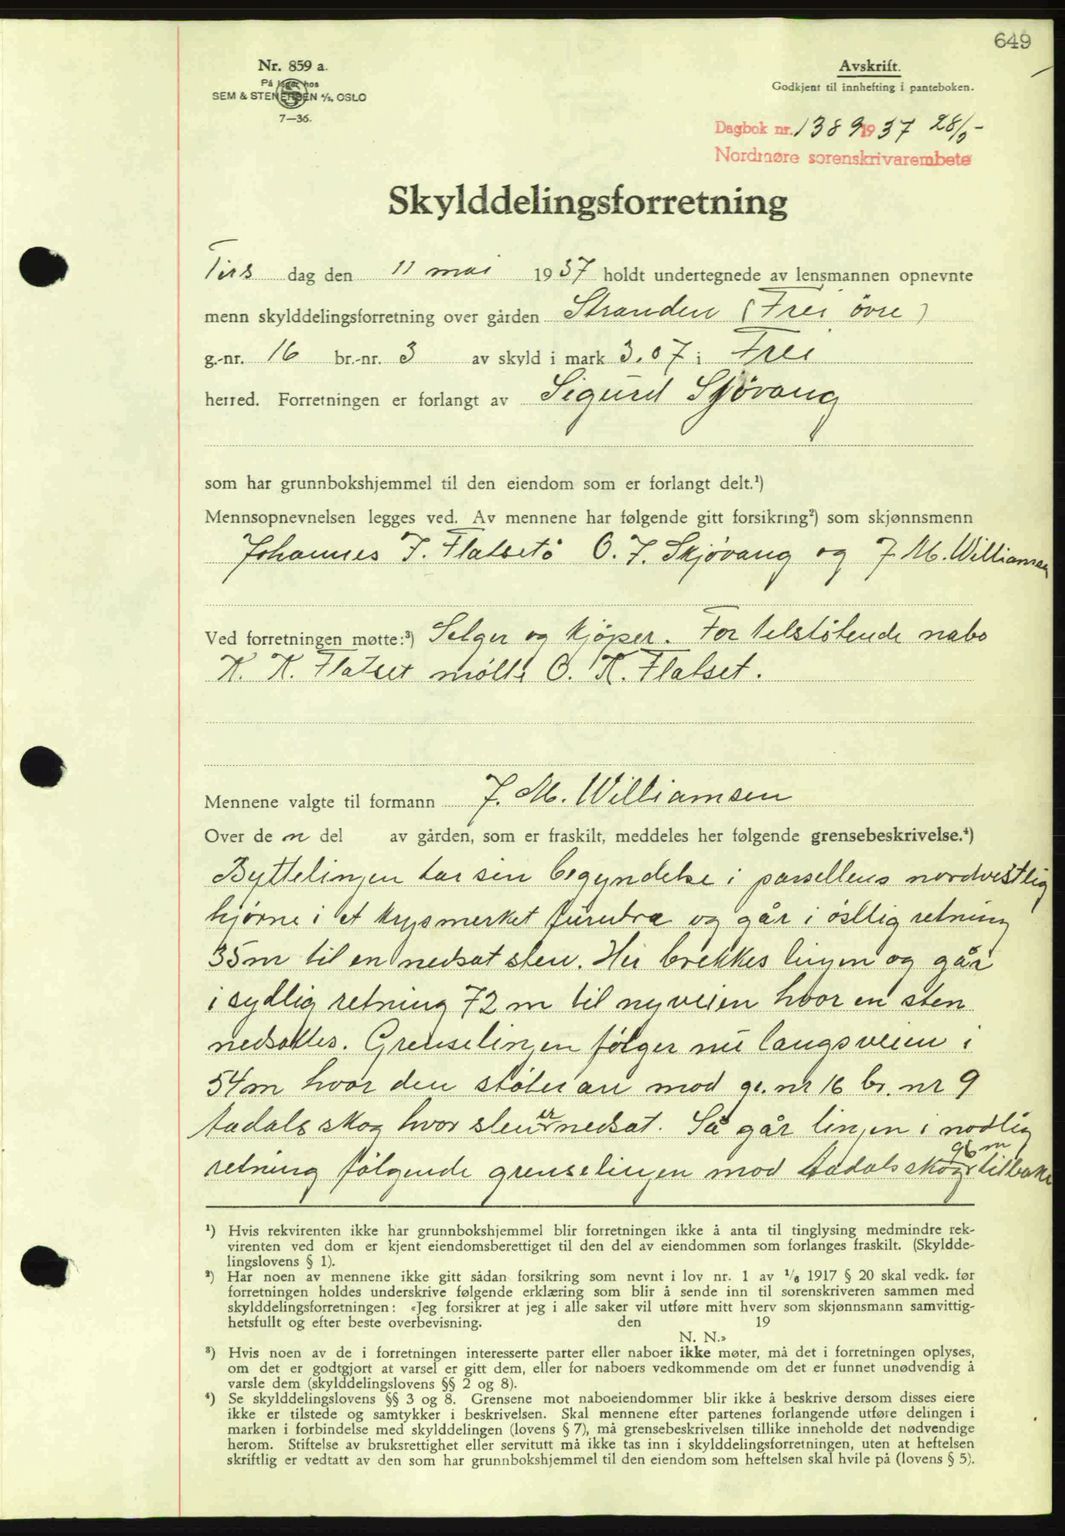 649
Nr. 859 a.
På lager hos
SEM & STENERSEN A/S, OSLO
7—36.
Avskrift.
Godkjent til innhefting i panteboken.
Dagbok nr. 1389 1937 28/5-
Nordmøre sorenskrivarembete
Skylddelingsforretning
Tirs dag den 11 mai 1937 holdt undertegnede av lensmannen opnevnte
menn skylddelingsforretning over gården Stranden (Frei övre)
g.-nr. 16 br.-nr. 3 av skyld i mark 3.07 i Frei
herred. Forretningen er forlangt av Sigurd Sjövang
som har grunnbokshjemmel til den eiendom som er forlangt delt.¹)
Mennsopnevnelsen legges ved. Av mennene har følgende gitt forsikring²) som skjønnsmenn
Johannes J. Flatsetö O. J. Skjövang og J. M. Williamsen
Ved forretningen møtte:³) Selger og kjöper. For tilstötende nabo
K. K. Flatset mötte O. K. Flatset.
Mennene valgte til formann J. M. Williamsen
Over de n del av gården, som er fraskilt, meddeles her følgende grensebeskrivelse.⁴)
Byttelinjen tar sin begyndelse i parsellens nordvestlig
hjörne i et krysmerket furutre og går i östlig retning
35m til en nedsat sten. Her brekkes linjen og går
i sydlig retning 72 m til nyveien hvor en sten
nedsattes. Grenselinjen fölger nu langs veien i
54m hvor den stöter an mod gr. nr 16 br. nr 9
Aadalsskog hvor sten er nedsat. Så går linjen i nordlig
retning fölgende grenselinjen mod Aadalsskog 96 m tilbake
¹) Hvis rekvirenten ikke har grunnbokshjemmel blir forretningen ikke å anta til tinglysing medmindre rek-
virenten ved dom er kjent eiendomsberettiget til den del av eiendommen som forlanges fraskilt. (Skyldde-
lingslovens § 1).
²) Har noen av mennene ikke gitt sådan forsikring som nevnt i lov nr. 1 av 1/6 1917 § 20 skal vedk. før
forretningen holdes underskrive følgende erklæring som blir å sende inn til sorenskriveren sammen med
skylddelingsforretningen: «Jeg forsikrer at jeg i alle saker vil utføre mitt hverv som skjønnsmann samvittig-
hetsfullt og efter beste overbevisning. den 19
N. N.»
³) Hvis noen av de i forretningen interesserte parter eller naboer ikke møter, må det i forretningen oplyses,
om det er godtgjort at varsel er gitt dem, eller for naboers vedkommende om det er funnet unødvendig å
varsle dem (skylddelingslovens §§ 2 og 8).
⁴) Se skylddelingslovens §§ 3 og 8. Grensene mot naboeiendommer blir ikke å beskrive dersom disses eiere
ikke er tilstede og samtykker i beskrivelsen. Skal mennene efter partenes forlangende utføre delingen i
marken i forbindelse med skylddelingen (lovens § 7), må grensebeskrivelsen tillike inneholde det nødvendige
herom. Stiftelse av bruksrettighet eller servitutt må ikke tas inn i skylddelingsforretningen, uten at heftelsen
skriftlig er vedtatt av den som har grunnbokshjemmel til den eiendom som heftelsen skal hvile på (lovens § 5).